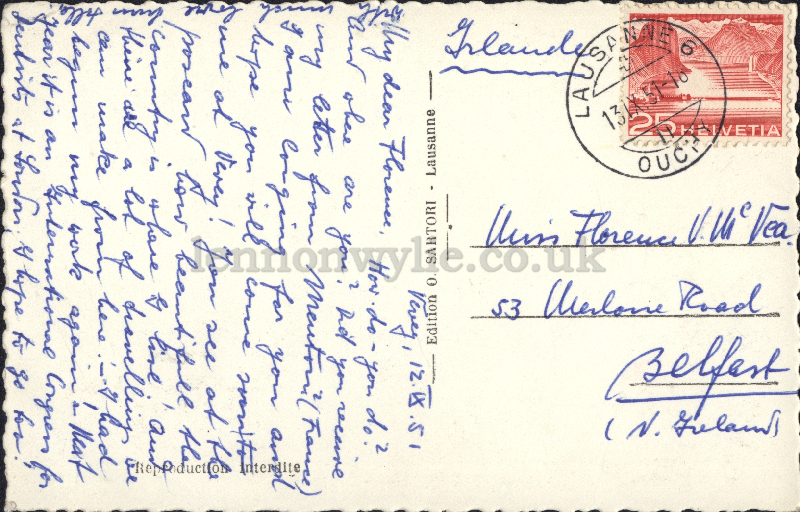 Vevey, 12.IX.51
My dear Florence, How-do-you do?
And where are you? Did you receive
my letter from Menton? (France)
I am longing for you and
hope you will come soon to
see me at Vevey! You see at the
postcard how beautiful the
country is where I live! And
there are a lot of travelling we
can make from here. - I had
begun my work again - Next
year it is an International Congress for
dentists at London. I hope to go too!
much
love
Edition O. SARTORI - Lausanne
Reproduction interdite
Irlande
LAUSANNE 6
13.IX.51-18
OUCHY
25 HELVETIA
Miss Florence V. McVea.
53 Merlone Road
Belfast
(N. Ireland)
lennonwylie.co.uk